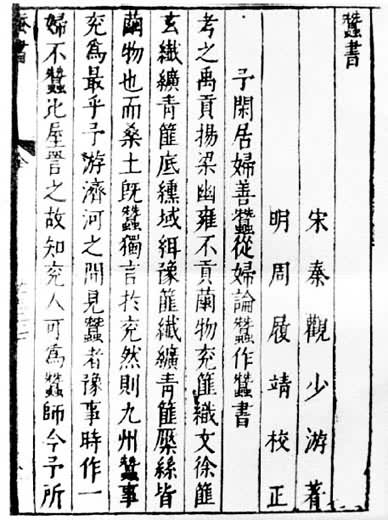 蠶書
宋秦觀少游著
明周履靖校正
予閑居婦善蠶從婦論蠶作蠶書
考之禹貢揚梁幽雍不貢繭物兗篚織文徐篚
玄纖纊青篚底纁域豫篚纖纊青篚檿絲皆
繭物也而桑土既蠶獨言於兗然則九州蠶事
兗為最乎予游濟河之間見蠶者豫事時作一
婦不蠶比屋詈之故知兗人可為蠶師今予所